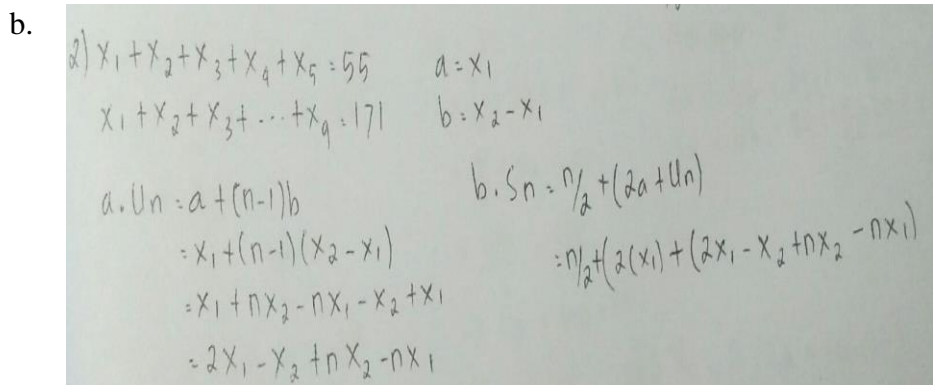 b.
2) x₁ + x₂ + x₃ + x₄ + x₅ = 55
x₁ + x₂ + x₃ + ... + x₉ = 171
a = x₁
b = x₂ - x₁
a. Un = a + (n-1)b
= x₁ + (n-1)(x₂ - x₁)
= x₁ + nx₂ - nx₁ - x₂ + x₁
= 2x₁ - x₂ + nx₂ - nx₁
b. Sn = n/2 + (2a + Un)
= n/2 + (2(x₁) + (2x₁ - x₂ + nx₂ - nx₁)